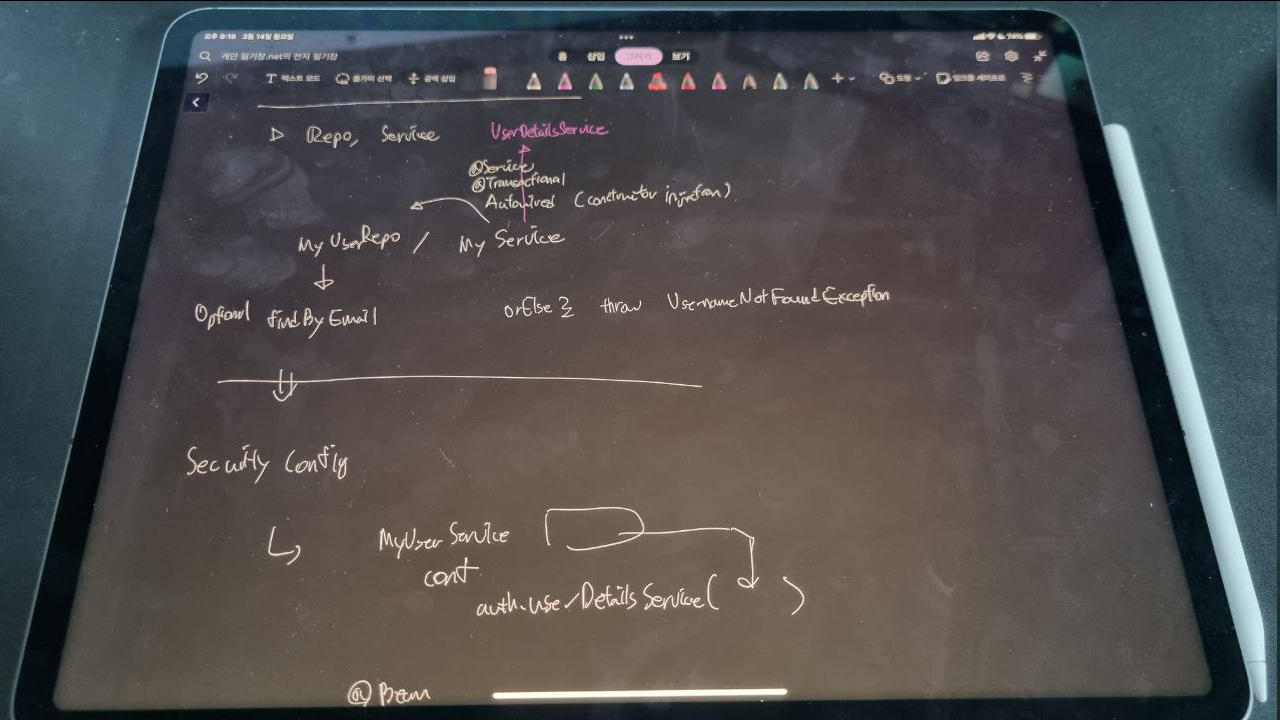 오후 9:16 3월 14일 월요일
개인 필기장.net의 전자 필기장
홈 삽입 그리기 보기
텍스트 모드 올가미 선택 공백 삽입 도형
▷ Repo, Service UserDetailsService
@Service
@Transactional
Autowired (constructor injection).
My UserRepo / My Service
Optional findByEmail orElse throw UsernameNotFoundException
Security Config
MyUserService
auth.userDetailsService( )
@Bean